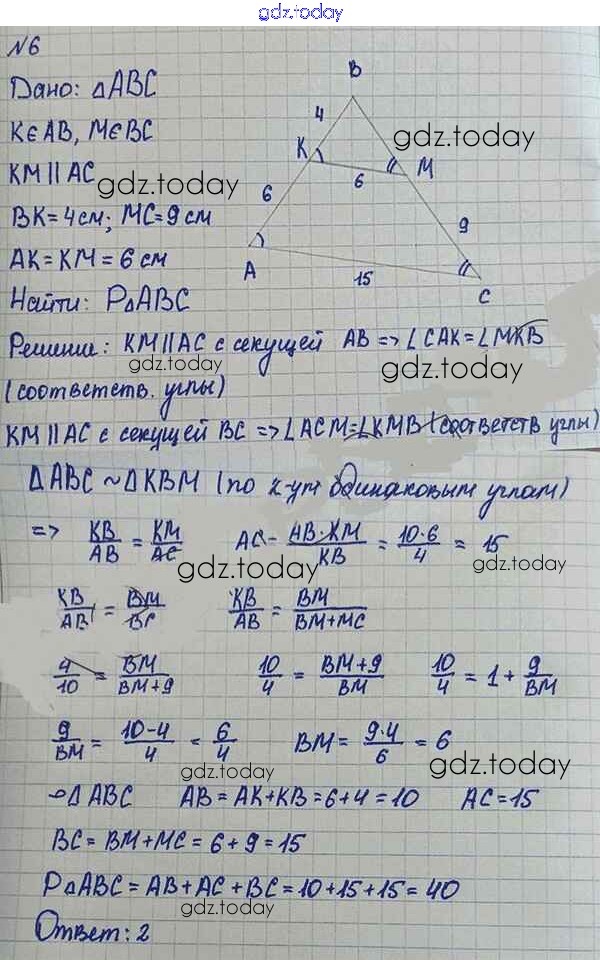 gdz.today
№6
Дано: △ABC
K∈AB, M∈BC
KM || AC
BK = 4 см; MC = 9 см
AK = KM = 6 см
Найти: P△ABC
B
4
K
M
6
6
9
A
15
C
gdz.today
gdz.today
Решение: KM || AC с секущей AB => ∠CAK = ∠MKB
(соответств. углы)
gdz.today
gdz.today
KM || AC с секущей BC => ∠ACM = ∠KMB (соответств углы)
△ABC ~ △KBM (по 2-ум одинаковым углам)
=> KB/AB = KM/AC AC = AB·KM/KB = 10·6/4 = 15
gdz.today
gdz.today
KB/AB = BM/BC KB/AB = BM/BM+MC
4/10 = BM/BM+9 10/4 = BM+9/BM 10/4 = 1 + 9/BM
9/BM = 10-4/4 = 6/4 BM = 9·4/6 = 6
gdz.today
gdz.today
△ABC AB = AK+KB = 6+4 = 10 AC = 15
BC = BM+MC = 6+9 = 15
P△ABC = AB+AC+BC = 10+15+15 = 40
gdz.today
Ответ: 2